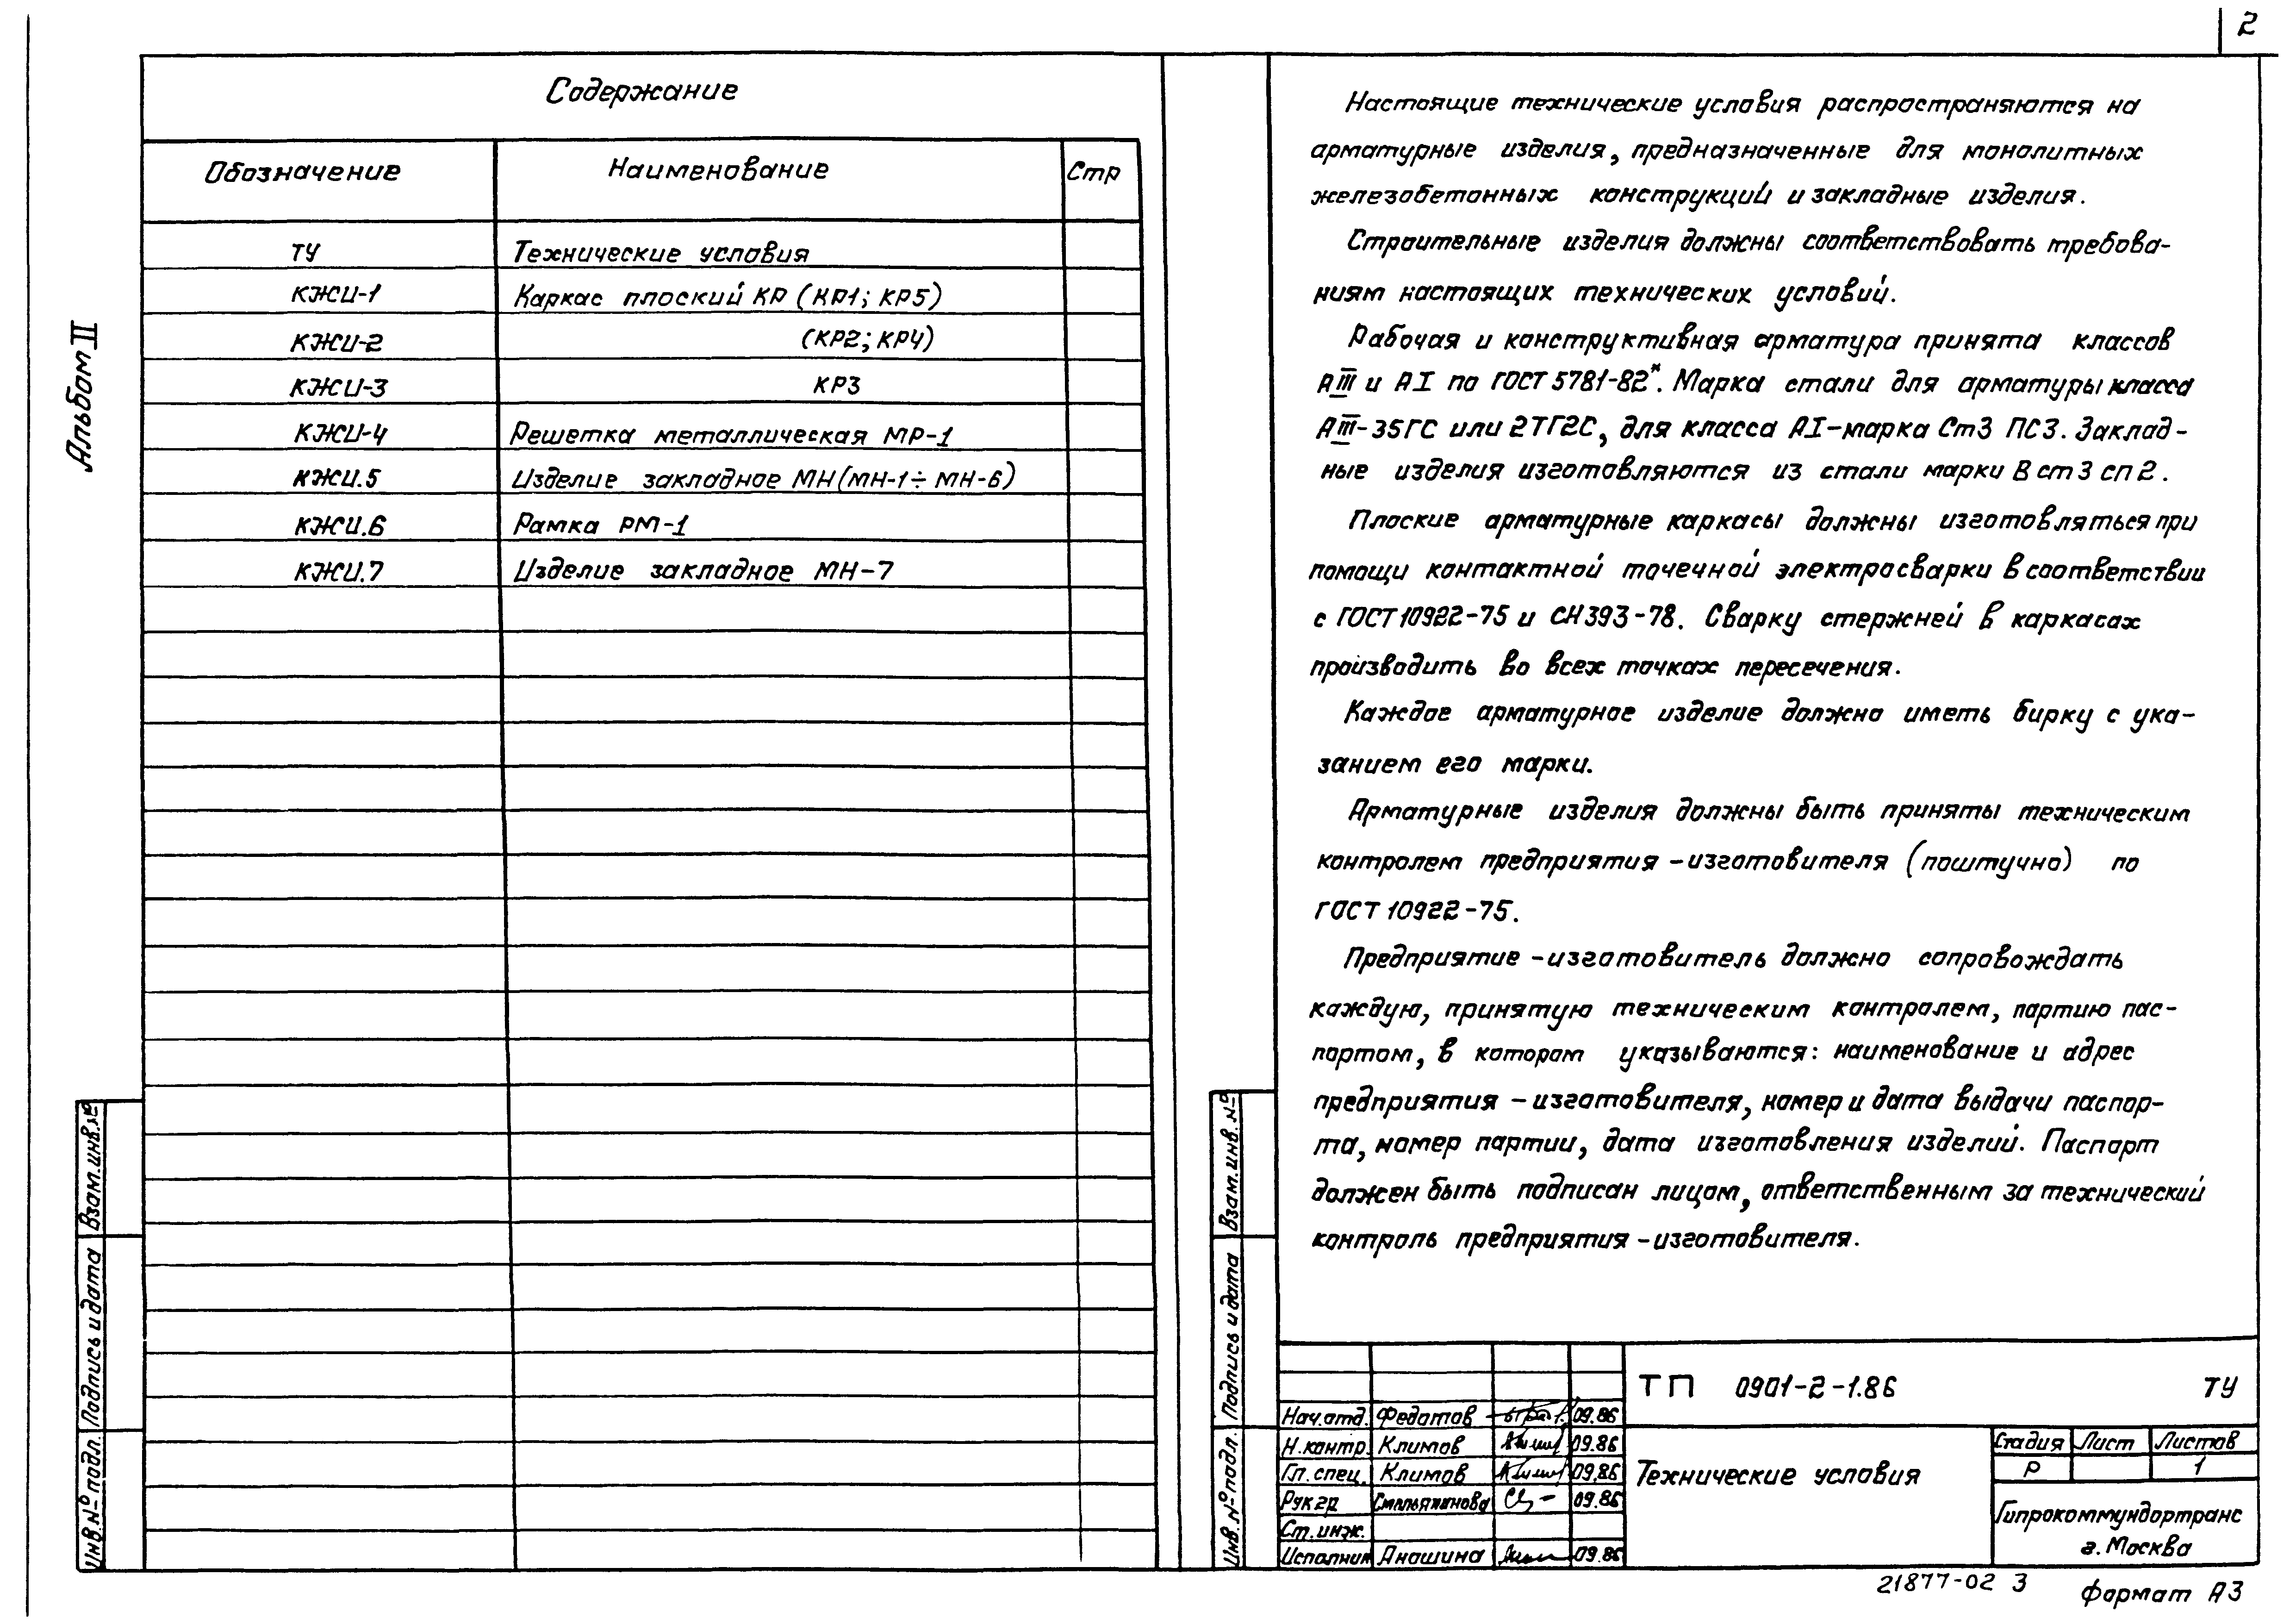 2
Альбом II
Содержание
Обозначение Наименование Стр
ТУ Технические условия
КЖИ-1 Каркас плоский КР (КР1; КР5)
КЖИ-2 (КР2; КР4)
КЖИ-3 КР3
КЖИ-4 Решетка металлическая МР-1
КЖИ.5 Изделие закладное МН (МН-1÷МН-6)
КЖИ.6 Рамка РМ-1
КЖИ.7 Изделие закладное МН-7
Взам.инв.№
Подпись и дата
Инв.№ подл.
Настоящие технические условия распространяются на
арматурные изделия, предназначенные для монолитных
железобетонных конструкций и закладные изделия.
Строительные изделия должны соответствовать требова-
ниям настоящих технических условий.
Рабочая и конструктивная арматура принята классов
АIII и АI по ГОСТ 5781-82*. Марка стали для арматуры класса
АIII-35ГС или 2ТГ2С, для класса АI-марка Ст3 ПС3. Заклад-
ные изделия изготовляются из стали марки В ст 3 сп 2.
Плоские арматурные каркасы должны изготовляться при
помощи контактной точечной электросварки в соответствии
с ГОСТ 10922-75 и СН 393-78. Сварку стержней в каркасах
производить во всех точках пересечения.
Каждое арматурное изделие должно иметь бирку с ука-
занием его марки.
Арматурные изделия должны быть приняты техническим
контролем предприятия-изготовителя (поштучно) по
ГОСТ 10922-75.
Предприятие-изготовитель должно сопровождать
каждую, принятую техническим контролем, партию пас-
портом, в котором указываются: наименование и адрес
предприятия-изготовителя, номер и дата выдачи паспор-
та, номер партии, дата изготовления изделий. Паспорт
должен быть подписан лицом, ответственным за технический
контроль предприятия-изготовителя.
Взам.инв.№
Подпись и дата
Инв.№ подл.
ТП 0901-2-1.86 ТУ
Нач.отд. Федотов 09.86
Н.контр. Климов 09.86
Гл.спец. Климов 09.86
Рук гр Смольянинова 09.86
Ст.инж.
Исполнил Аношина 09.86
Технические условия
Стадия Лист Листов
Р 1
Гипрокоммундортранс
г.Москва
21877-02 3
Формат А3